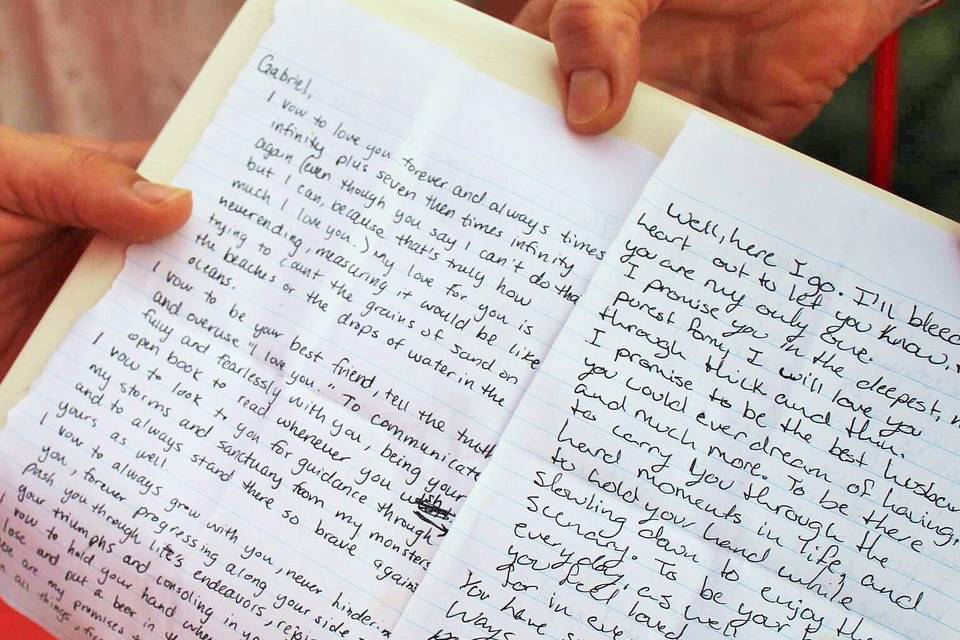 Gabriel,
I vow to love you forever and always times
infinity plus seven then times infinity
again (even though you say I can't do tha
but I can, because that's truly how
much I love you.) My love for you is
neverending, measuring it would be like
trying to count the grains of sand on
the beaches or the drops of water in the
oceans.
I vow to be your best friend, tell the truth
and overuse "I love you." To communicate
fully and fearlessly with you, being your
open book to read whenever you
I vow to look to you for guidance through
my storms and sanctuary from my monsters
and to always stand there so brave against
yours as well.
I vow to always grow with you, never hinderin
you, forever progressing along your side
push you through life's endeavors, rejoi
your triumphs and consoling in yo
I vow to hold your hand when
lose and put a beer in th
are my promises
all things,
Well, here I go. I'll bleed
heart out to let you know,
you are my only one.
I promise you in the deepest,
purest form, I will love you
through thick and thin.
I promise to be the best husban
you could ever dream of having,
and much more. To be there
to carry you through the
heard moments in life, and
to hold your hand while
slowling down to enjoy th
scenary. To be your
everyday, as well
you feel loved
for in eve
You have s
ways